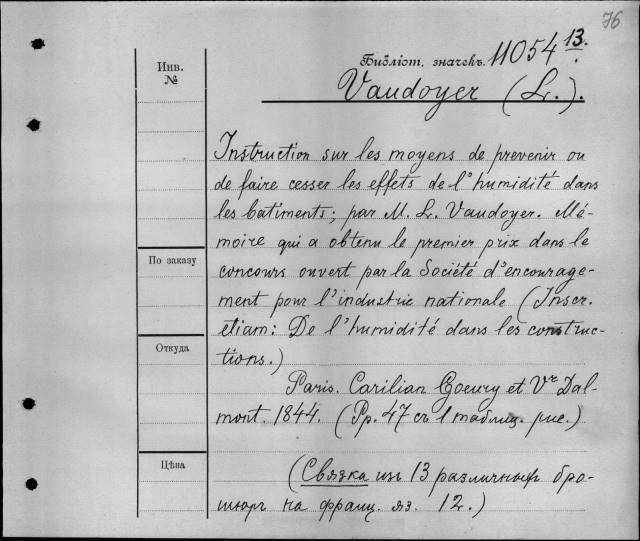 76
Инв.
№
Библіот. значекъ. 11054 13.
Vaudoyer (L.).
Instruction sur les moyens de prevenir ou
de faire cesser les effets de l'humidité dans
les batiments; par M. L. Vaudoyer. Mé-
moire qui a obtenu le premier prix dans le
По заказу
concours ouvert par la Société d'encourage-
ment pour l'industrie nationale (Inscr.
etiam: De l'humidité dans les construc-
Откуда
tions.)
Paris. Carilian Goeury et Vʳᵉ Dal-
mont. 1844. (Pp. 47 съ 1 таблиц. рис.)
Цѣна
(Связка изъ 13 различныхъ бро-
шюръ на франц. яз. 12.)